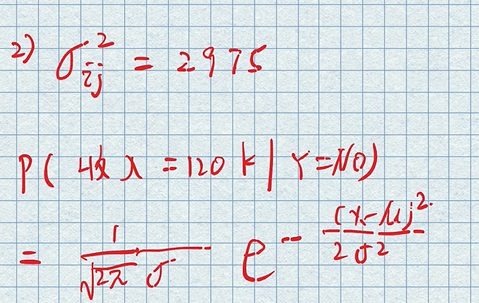 2) σ²ij = 2975
P( 收入 = 120 K | Y = NO)
= 1/(√2π σ) e^(- (x-μ)²/2σ²)